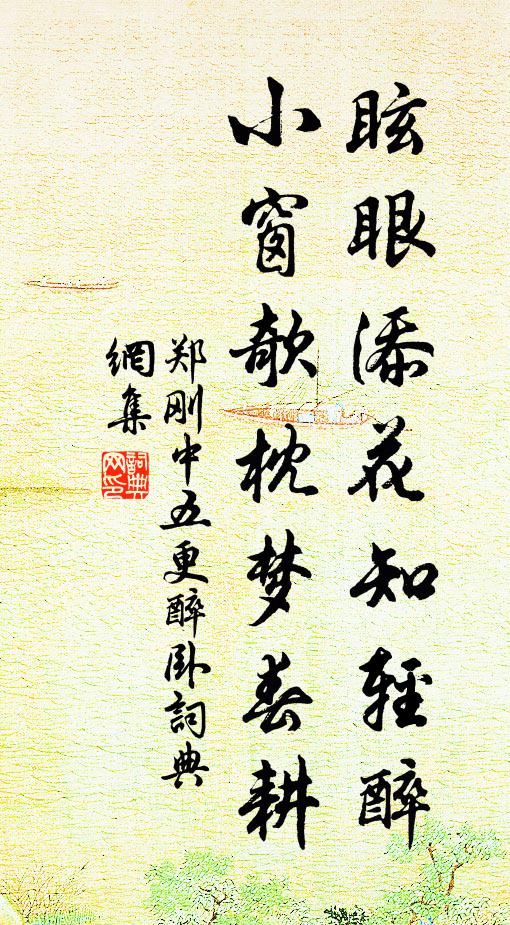 眩眼添花知輕醉
小窗欹枕梦春耕
郑刚中五更醉卧詞典
網集
詞典網印